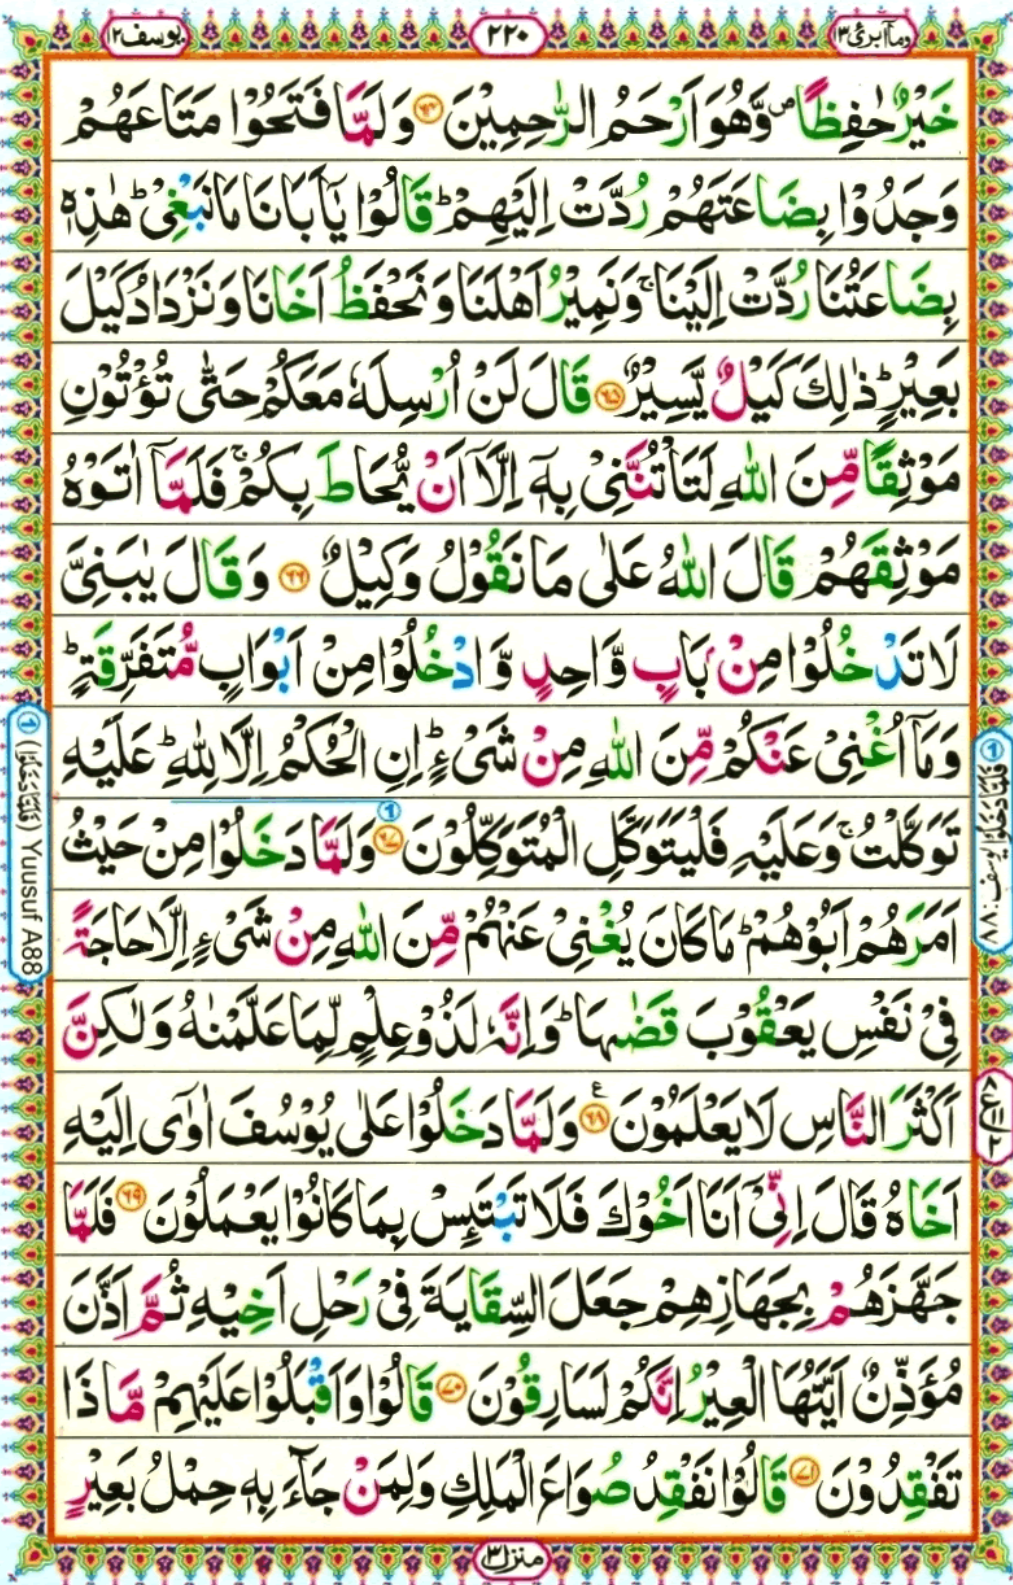 وما ابرئ ١٣
٢٢٠
يوسف ١٢
خَيْرٌ حٰفِظًا ۪ وَّهُوَ اَرْحَمُ الرّٰحِمِيْنَ ۝٦٤ وَلَمَّا فَتَحُوْا مَتَاعَهُمْ
وَجَدُوْا بِضَاعَتَهُمْ رُدَّتْ اِلَيْهِمْ ؕ قَالُوْا يٰۤاَبَانَا مَا نَبْغِيْ ؕ هٰذِهٖ
بِضَاعَتُنَا رُدَّتْ اِلَيْنَا ۚ وَنَمِيْرُ اَهْلَنَا وَنَحْفَظُ اَخَانَا وَنَزْدَادُ كَيْلَ
بَعِيْرٍ ؕ ذٰلِكَ كَيْلٌ يَّسِيْرٌ ۝٦٥ قَالَ لَنْ اُرْسِلَهٗ مَعَكُمْ حَتّٰى تُؤْتُوْنِ
مَوْثِقًا مِّنَ اللّٰهِ لَتَاْتُنَّنِيْ بِهٖۤ اِلَّاۤ اَنْ يُّحَاطَ بِكُمْ ۚ فَلَمَّاۤ اٰتَوْهُ
مَوْثِقَهُمْ قَالَ اللّٰهُ عَلٰى مَا نَقُوْلُ وَكِيْلٌ ۝٦٦ وَقَالَ يٰبَنِيَّ
لَا تَدْخُلُوْا مِنْۢ بَابٍ وَّاحِدٍ وَّادْخُلُوْا مِنْ اَبْوَابٍ مُّتَفَرِّقَةٍ ؕ
وَمَاۤ اُغْنِيْ عَنْكُمْ مِّنَ اللّٰهِ مِنْ شَيْءٍ ؕ اِنِ الْحُكْمُ اِلَّا لِلّٰهِ ؕ عَلَيْهِ
تَوَكَّلْتُ ۚ وَعَلَيْهِ فَلْيَتَوَكَّلِ الْمُتَوَكِّلُوْنَ ۝٦٧ وَلَمَّا دَخَلُوْا مِنْ حَيْثُ
اَمَرَهُمْ اَبُوْهُمْ ؕ مَا كَانَ يُغْنِيْ عَنْهُمْ مِّنَ اللّٰهِ مِنْ شَيْءٍ اِلَّا حَاجَةً
فِيْ نَفْسِ يَعْقُوْبَ قَضٰىهَا ؕ وَاِنَّهٗ لَذُوْ عِلْمٍ لِّمَا عَلَّمْنٰهُ وَلٰكِنَّ
اَكْثَرَ النَّاسِ لَا يَعْلَمُوْنَ ۝٦٨ وَلَمَّا دَخَلُوْا عَلٰى يُوْسُفَ اٰوٰۤى اِلَيْهِ
اَخَاهُ قَالَ اِنِّيْۤ اَنَا اَخُوْكَ فَلَا تَبْتَئِسْ بِمَا كَانُوْا يَعْمَلُوْنَ ۝٦٩ فَلَمَّا
جَهَّزَهُمْ بِجَهَازِهِمْ جَعَلَ السِّقَايَةَ فِيْ رَحْلِ اَخِيْهِ ثُمَّ اَذَّنَ
مُؤَذِّنٌ اَيَّتُهَا الْعِيْرُ اِنَّكُمْ لَسَارِقُوْنَ ۝٧٠ قَالُوْا وَاَقْبَلُوْا عَلَيْهِمْ مَّاذَا
تَفْقِدُوْنَ ۝٧١ قَالُوْا نَفْقِدُ صُوَاعَ الْمَلِكِ وَلِمَنْ جَآءَ بِهٖ حِمْلُ بَعِيْرٍ
منزل ٣
① (فَلَمَّا دَخَلُوْا) Yuusuf A88
① فَلَمَّا دَخَلُوْا يوسف: ٨٨